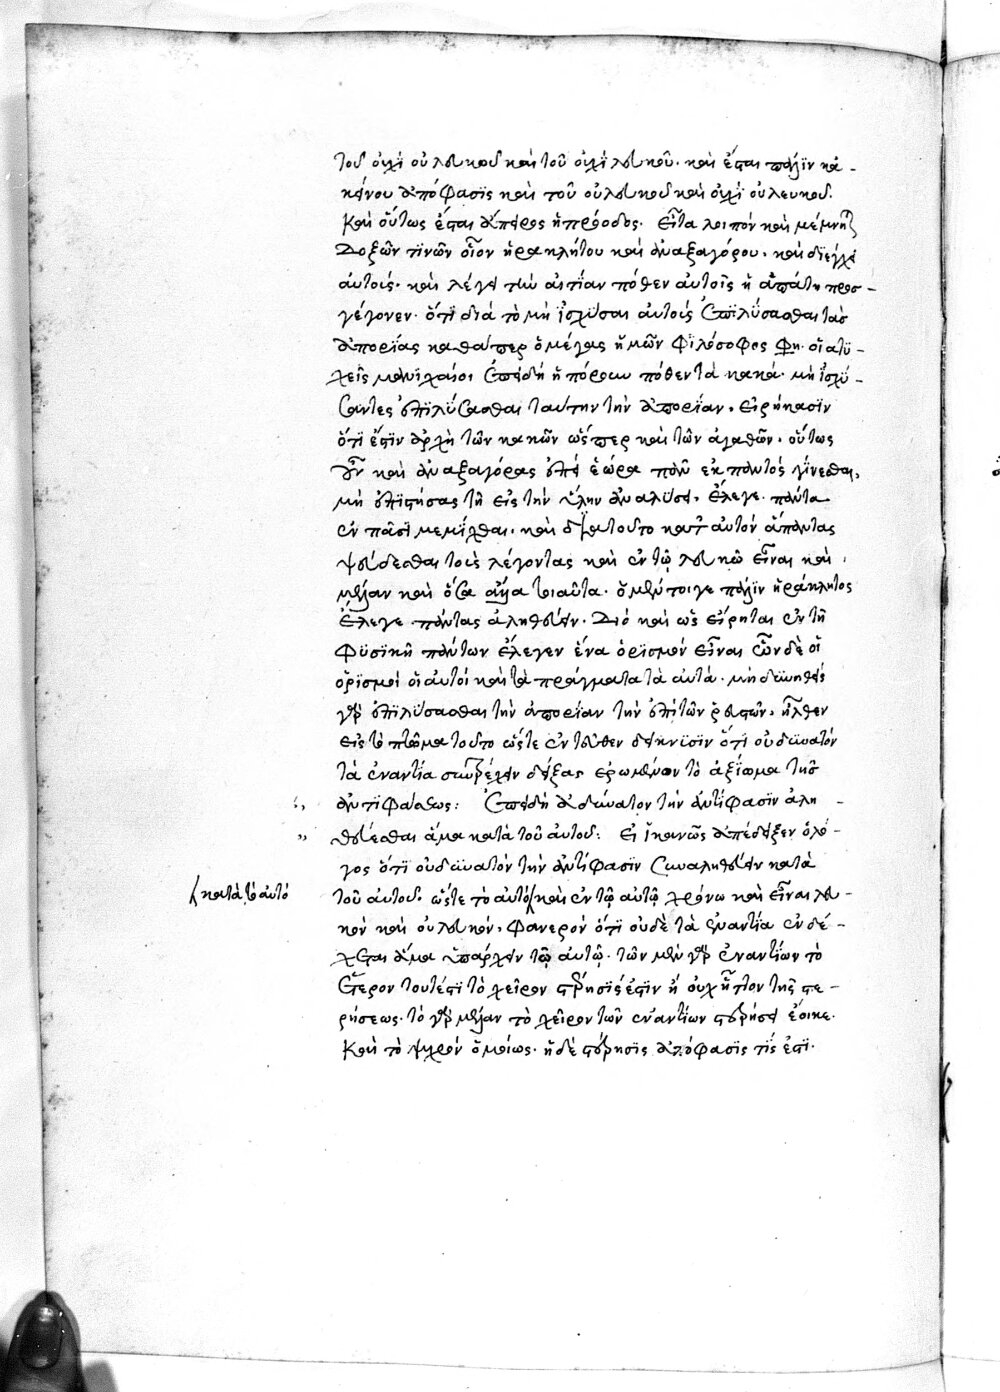 τοῦ οὐχὶ οὐ λευκοῦ καὶ τοῦ οὐχὶ λευκοῦ. καὶ ἔσται πάλιν κἀ-
κείνου ἀπόφασις καὶ τοῦ οὐ λευκοῦ καὶ οὐχὶ οὐ λευκοῦ.
Καὶ οὕτως ἔσται ἄπειρος ἡ πρόοδος. Εἶτα λοιπὸν καὶ μέμνηται
δοξῶν τινῶν οἷον ἡρακλήτου καὶ ἀναξαγόρου. καὶ διελέγχει
αὐτούς. καὶ λέγει τὴν αἰτίαν πόθεν αὐτοῖς ἡ ἀπάτη προσ-
γέγονεν. ὅτι διὰ τὸ μὴ ἰσχῦσαι αὐτοὺς ἐπιλύσασθαι τὰς
ἀπορίας καθάπερ ὁ μέγας ἡμῶν φιλόσοφος φη. οἱ ἀτυ-
χεῖς μανιχαῖοι ἐπειδὴ ἠπόρουν πόθεν τὰ κακά. μὴ ἰσχύ-
σαντες ἐπιλύσασθαι ταύτην τὴν ἀπορίαν, εἰρήκασιν
ὅτι ἔστιν ἀρχὴ τῶν κακῶν ὥσπερ καὶ τῶν ἀγαθῶν. οὕτως
οὖν καὶ ἀναξαγόρας ἐπεὶ ἑώρα πᾶν ἐκ παντὸς γίνεσθαι,
μὴ ἐπιστήσας τῇ εἰς τὴν ὕλην ἀναλύσει, ἔλεγε πάντα
ἐν πᾶσι μεμίχθαι. καὶ διὰ τοῦτο κατ' αὐτὸν ἅπαντας
ψεύδεσθαι τοὺς λέγοντας καὶ ἐν τῷ λευκῷ εἶναι καὶ
μέλαν καὶ ὅσα ἄλλα τοιαῦτα. ὁ μέντοιγε πάλιν ἡράκλητος
ἔλεγε πάντας ἀληθεύειν. Διὸ καὶ ὡς εἴρηται ἐν τῇ
φυσικῇ πάντων ἔλεγεν ἕνα ὁρισμὸν εἶναι ὧν δὲ οἱ
ὁρισμοὶ οἱ αὐτοὶ καὶ τὰ πράγματα τὰ αὐτά. μὴ δυνηθεὶς
γὰρ ἐπιλύσασθαι τὴν ἀπορίαν τὴν ἐπὶ τῶν ῥευστῶν, ἦλθεν
εἰς τὸ πτῶμα τοῦτο ὥστε ἐντεῦθεν δεικνύσιν ὅτι οὐ δυνατὸν
τὰ ἐναντία συντρέχειν δείξας ἐρωμένον τὸ ἀξίωμα τῆς
ἀντιφάσεως: Ἐπειδὴ ἀδύνατον τὴν ἀντίφασιν ἀλη-
θεύεσθαι ἅμα κατὰ τοῦ αὐτοῦ: Εἰ ἱκανῶς ἀπέδειξεν ὁ λό-
γος ὅτι οὐ δυνατὸν τὴν ἀντίφασιν συναληθεύειν κατὰ
τοῦ αὐτοῦ. ὥστε τὸ αὐτὸ καὶ ἐν τῷ αὐτῷ χρόνω καὶ εἶναι λευ-
κατὰ τὸ αὐτό
κὸν καὶ οὐ λευκόν, φανερὸν ὅτι οὐδὲ τὰ ἐναντία ἐνδέ-
χεται ἅμα ὑπάρχειν τῷ αὐτῷ. τῶν μὲν γὰρ ἐναντίων τὸ
ἕτερον τουτέστι τὸ χεῖρον στέρησίς ἐστιν ἢ οὐχ ἧττον τῆς στε-
ρήσεως. τὸ γὰρ μέλαν τὸ χεῖρον τῶν ἐναντίων στερήσει ἔοικε.
Καὶ τὸ ψυχρὸν ὁμοίως. ἡ δὲ στέρησις ἀπόφασίς τίς ἐστι.